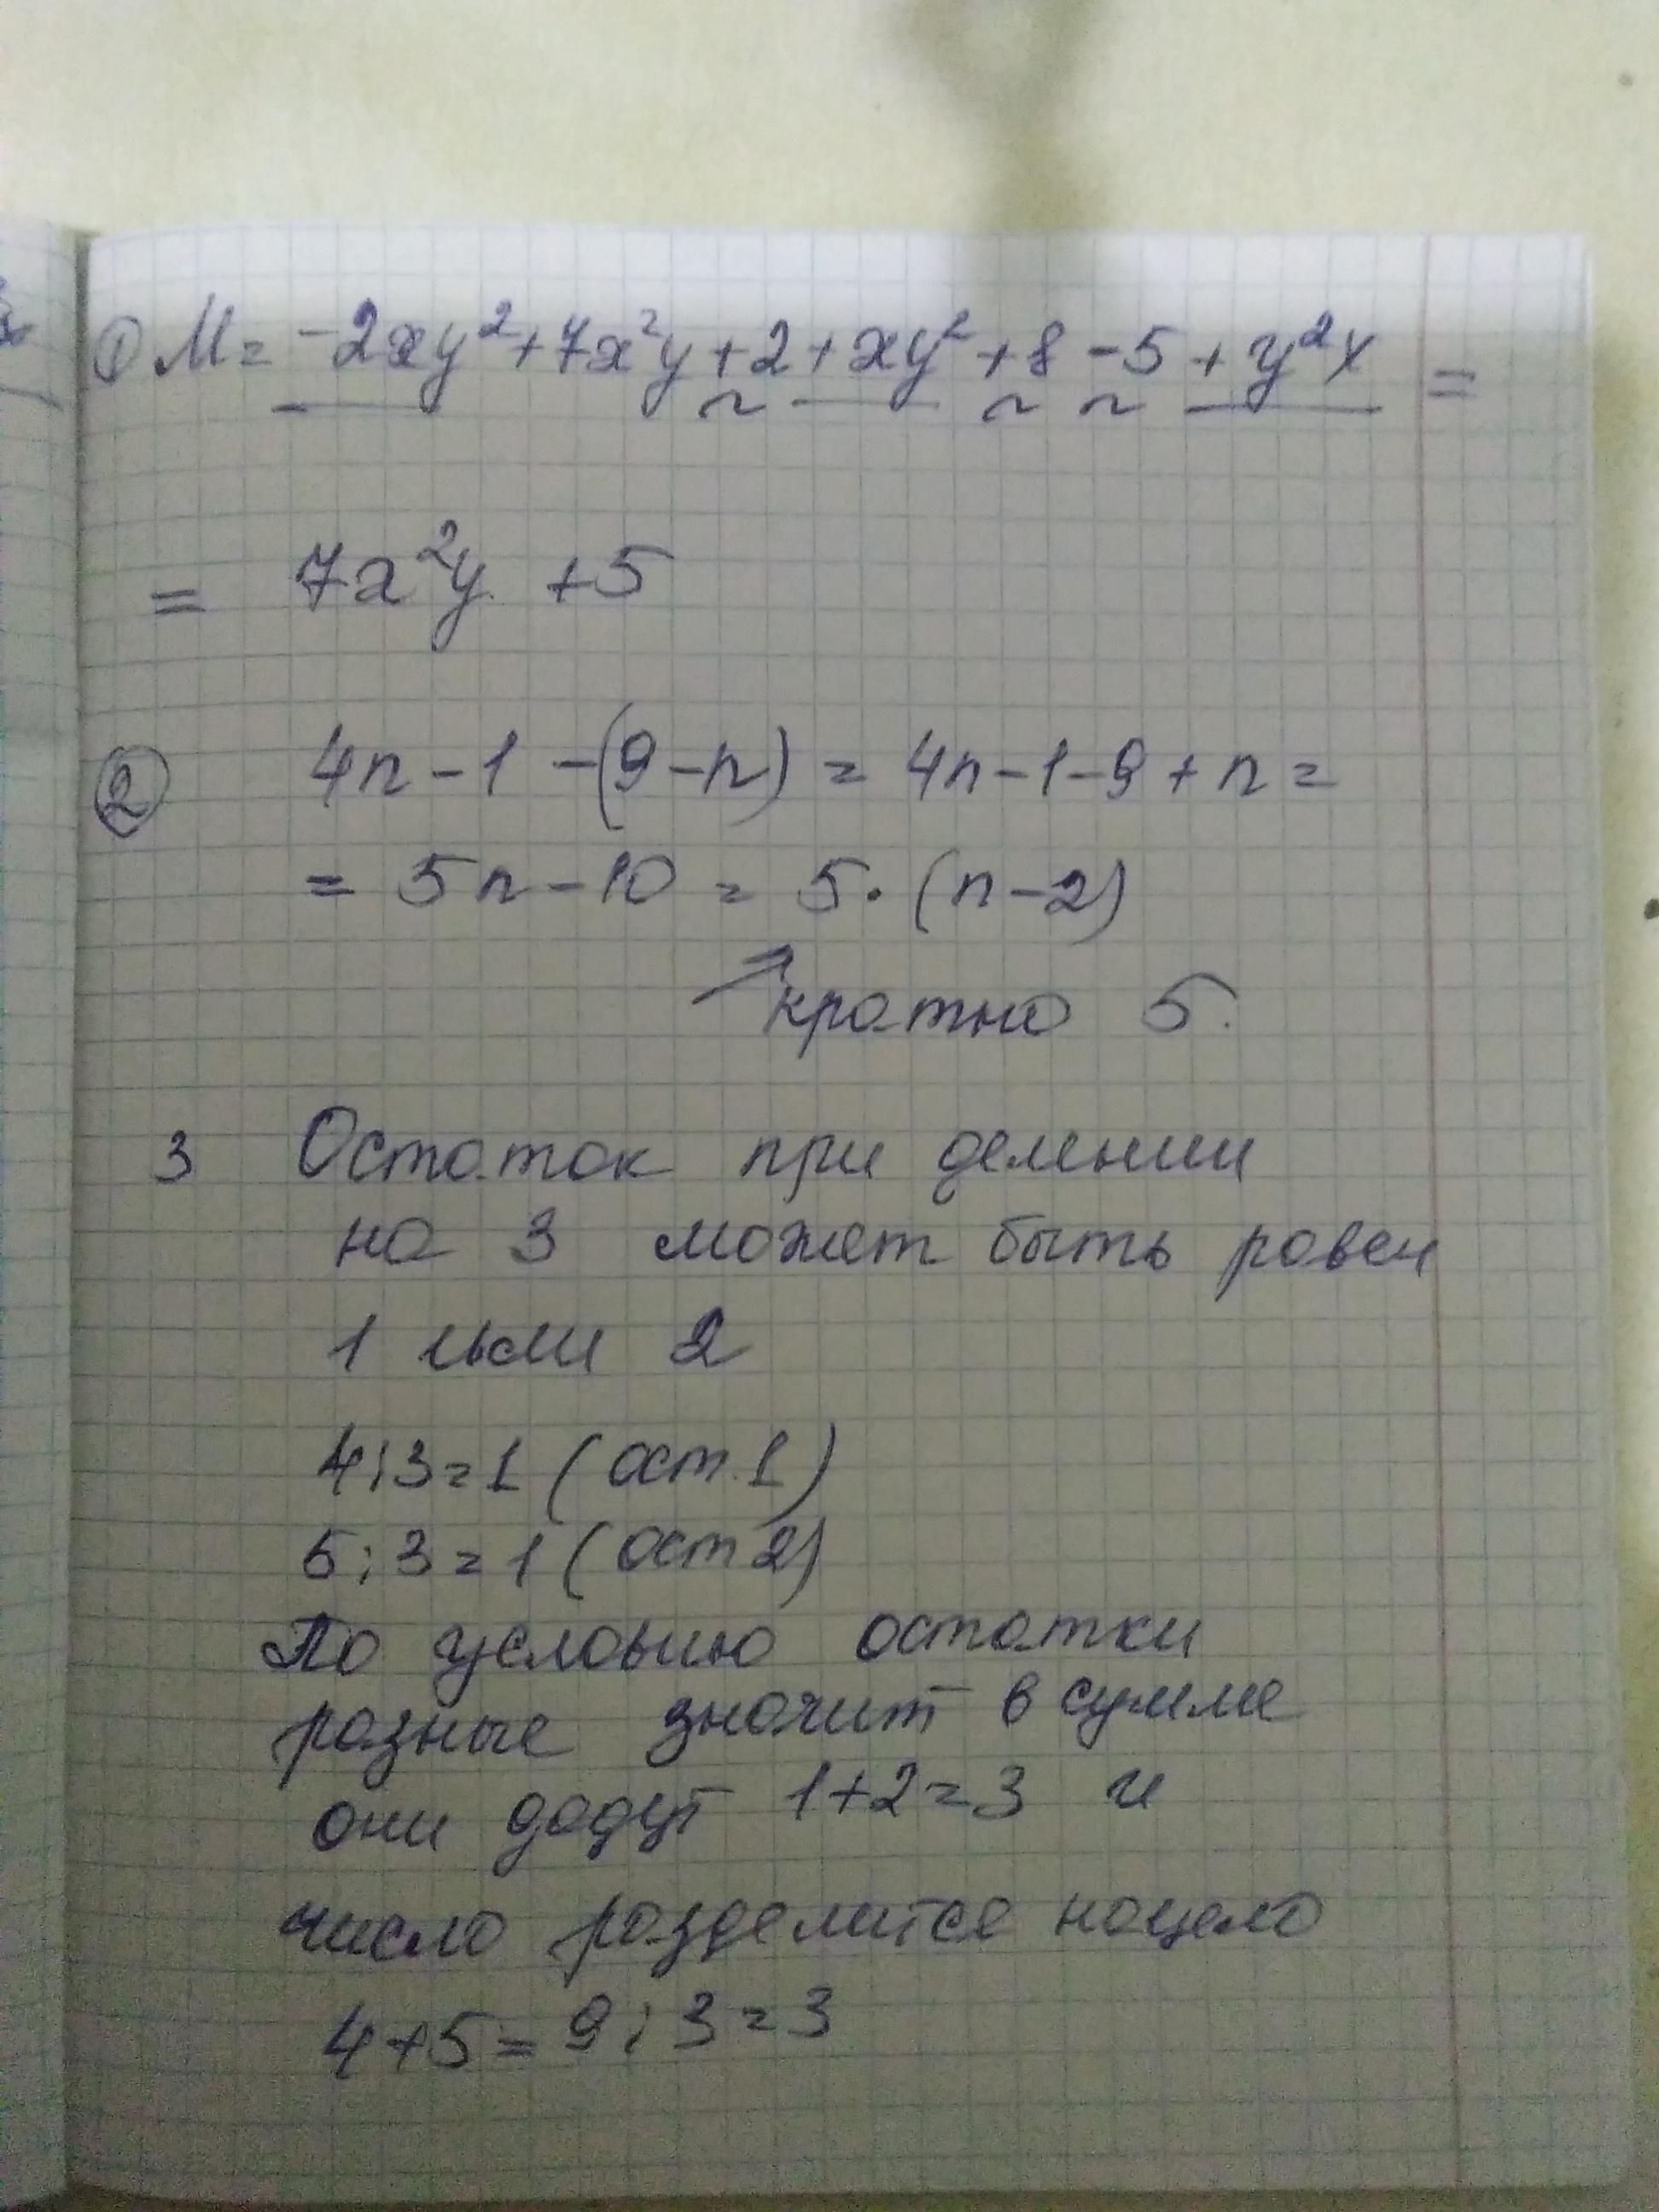 ① M = -2xy²+7x²y+2+xy²+8-5+y²x =
= 7x²y +5
② 4n-1-(9-n) = 4n-1-9+n =
= 5n-10 = 5·(n-2)
⇒ кратно 5.
3 Остаток при делении
на 3 может быть равен
1 или 2
4:3=1 (ост.1)
5:3=1 (ост 2)
По условию остатки
разные значит в сумме
они дадут 1+2=3 и
число разделится нацело
4+5=9:3=3